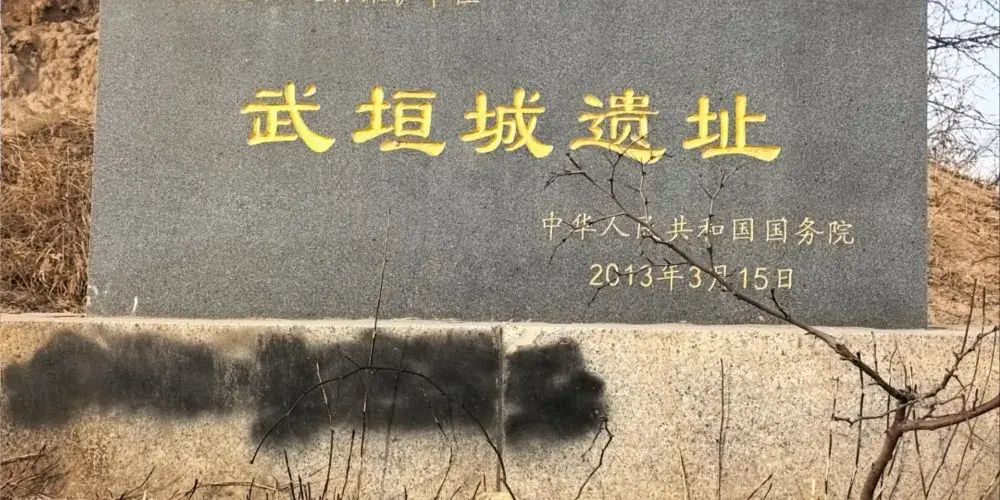 武垣城遗址
中华人民共和国国务院
2013年3月15日